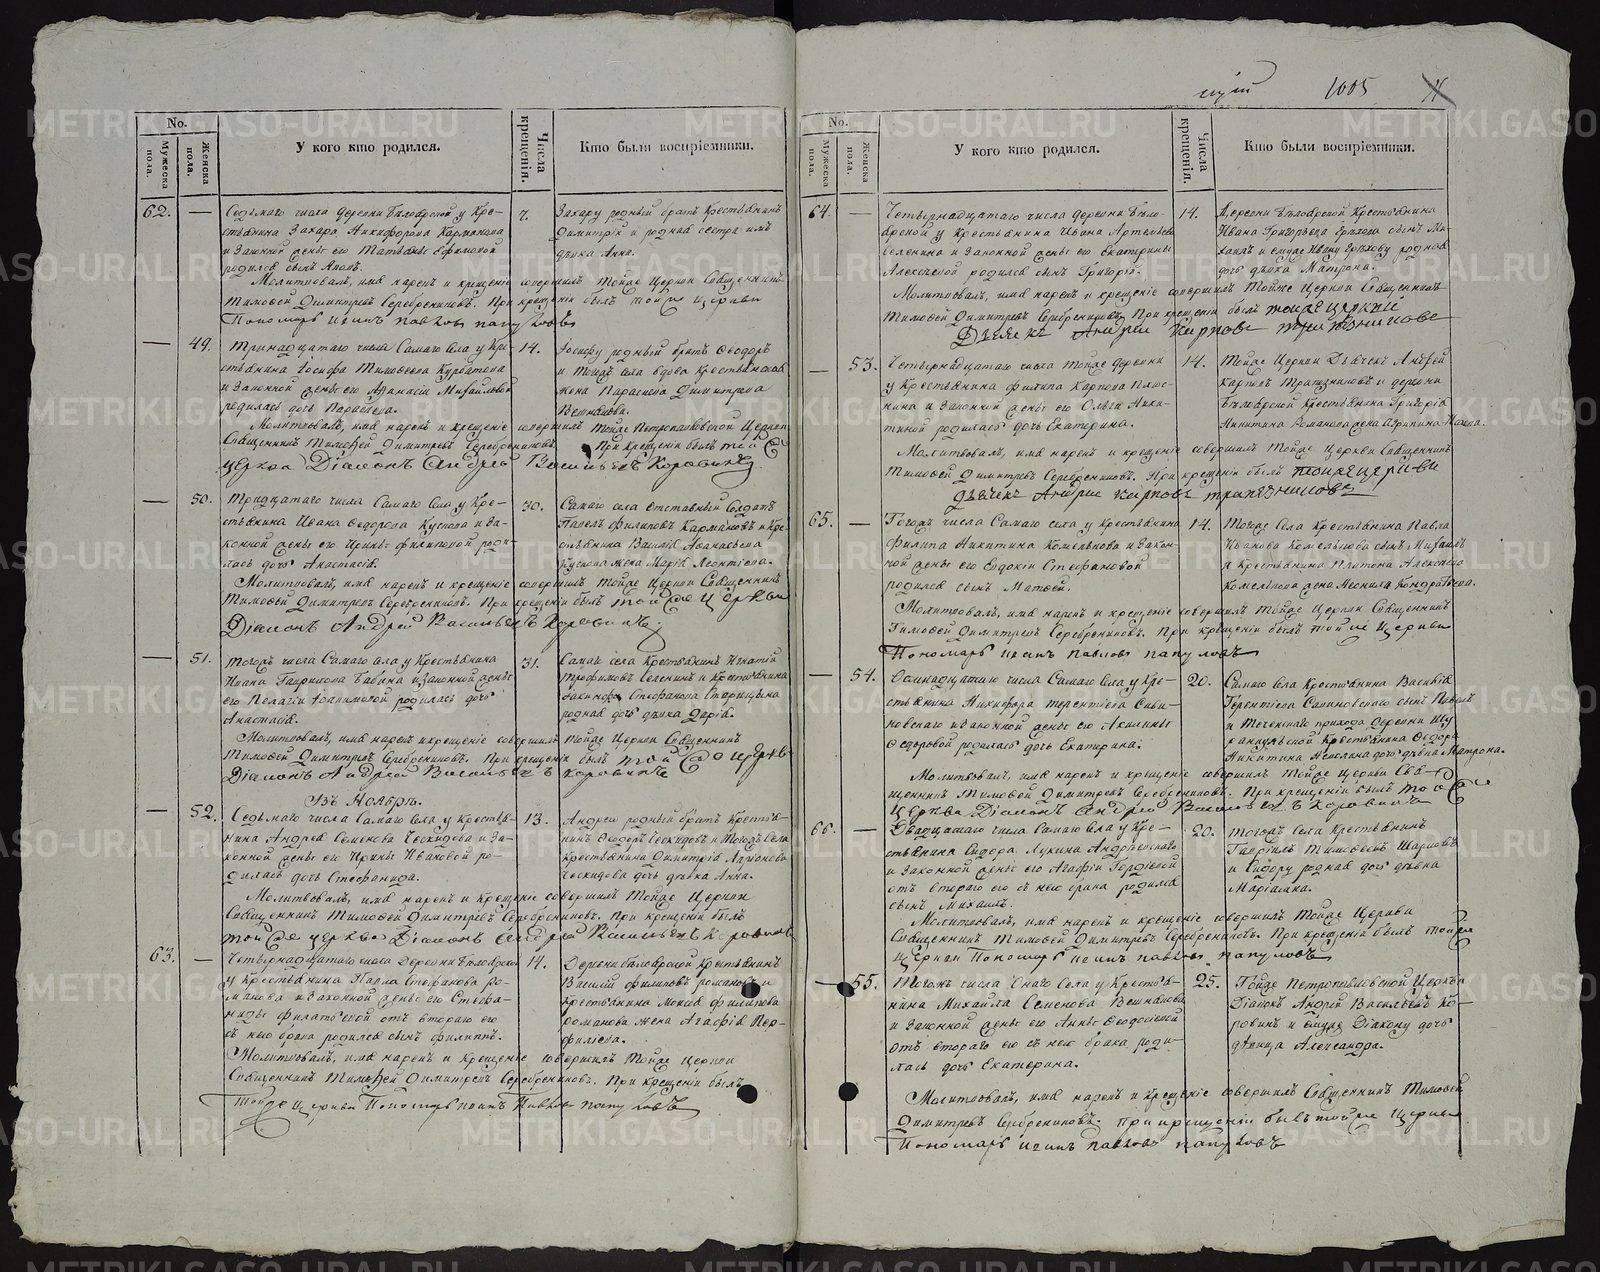 1005
No.
Мужеска пола.
Женска пола.
У кого кто родился.
Числа крещенія.
Кто были воспріемники.
62.
Седьмаго числа деревни Бѣлоярской у Кре-
стьянина Захара Никифорова Карманова
и законной жены его Татьяны Ефимовой
родился сынъ
7.
Захару родный братъ Крестьянинъ
Димитрій и родная сестра имъ
дѣвка Анна.
Молитвовалъ, имя нарекъ и крещеніе совершилъ тойже Церкви Священникъ
Тимоѳей Димитріевъ Серебренниковъ. При крещеніи былъ тойже Церкви
Пономарь
49.
Тринадцатаго числа Самаго села у Кре-
стьянина Іосифа Тимоѳеева Курбатова
и законной жены его Афанасіи Михайловой
родилась дочь Параскева.
14.
Іосифу родный братъ Ѳеодоръ
и тогожъ села вдова Крестьянская
жена Параскева Димитріева
Молитвовалъ, имя нарекъ и крещеніе совершилъ тойже Петропавловской Церкви
Священникъ Тимоѳей Димитріевъ Серебренниковъ. При крещеніи былъ тойже
церкви Діаконъ Андрей Васильевъ Коровинъ
50.
Тридцатаго числа Самаго села у Кре-
стьянина Ивана Ѳедорова Кускова и за-
конной жены его Ирины Филиповой роди-
лась дочь Анастасія.
30.
Самаго села отставный Солдатъ
Павелъ Филиповъ Кармановъ и Кре-
стьянина Василія Аѳанасьева
Кускова жена Марія Леонтіева.
Молитвовалъ, имя нарекъ и крещеніе совершилъ тойже Церкви Священникъ
Тимоѳей Димитріевъ Серебренниковъ. При крещеніи былъ тойже Церкви
Діаконъ Андрей Васильевъ Коровинъ
51.
Тогожъ числа Самаго села у Крестьянина
Ивана Гаврилова Бабина и законной жены
его Пелагіи Іоакимовой родилась дочь
Анастасія.
31.
Самаго села Крестьянинъ Игнатій
Трофимовъ Селенинъ и Крестьянина
Стефанова Старицына
родная дочь дѣвка Дарія.
Молитвовалъ, имя нарекъ и крещеніе совершилъ тойже Церкви Священникъ
Тимоѳей Димитріевъ Серебренниковъ. При крещеніи былъ тойже церкви
Діаконъ Андрей Васильевъ Коровинъ
Въ Ноябрѣ.
52.
Седьмаго числа Самаго села у Крестья-
нина Андрея Семенова Ческидова и за-
конной жены его Ирины Ивановой ро-
дилась дочь Стефанида.
13.
Андрею родный братъ Крестья-
нинъ Ѳеодоръ Ческидовъ и тогожъ села
крестьянина Димитрія Ларіонова
Ческидова дочь дѣвка Анна.
Молитвовалъ, имя нарекъ и крещеніе совершилъ тойже Церкви
Священникъ Тимоѳей Димитріевъ Серебренниковъ. При крещеніи былъ
тойже церкви Діаконъ Андрей Васильевъ Коровинъ
63.
Четырнадцатаго числа Деревни Бѣлоярской
у Крестьянина Павла Стефанова Ро-
манова и законной жены его Стефа-
ниды Филатьевой отъ втораго его
съ нею брака родился сынъ Филиппъ.
14.
Деревни Бѣлоярской Крестьянинъ
Василій Филиповъ Романовъ и
крестьянина Моисея Филипова
Романова жена Агафія Пер-
филіева.
Молитвовалъ, имя нарекъ и крещеніе совершилъ тойже Церкви
Священникъ Тимоѳей Димитріевъ Серебренниковъ. При крещеніи былъ
тойже Церкви Пономарь
No.
Мужеска пола.
Женска пола.
У кого кто родился.
Числа крещенія.
Кто были воспріемники.
64.
Четырнадцатаго числа деревни Бѣло-
ярской у Крестьянина Ивана Артемьева
Селенина и законной жены его Екатерины
Алексѣевой родился сынъ Григорій.
14.
Деревни Бѣлоярской Крестьянина
Ивана Григорьева сынъ Ми-
хаилъ и емуже Ивану родная
дочь дѣвка Матрона.
Молитвовалъ, имя нарекъ и крещеніе совершилъ тойже Церкви Священникъ
Тимоѳей Димитріевъ Серебренниковъ. При крещеніи былъ тойже церкви
Дьячекъ Андрей Карповъ Трапезниковъ
53.
Четырнадцатаго числа тойже деревни
у Крестьянина Филипа Карпова Плюс-
нина и законной жены его Ольги Ники-
тиной родилась дочь Екатерина.
14.
Тойже Церкви Дьячекъ Андрей
Карповъ Трапезниковъ и деревни
Бѣлоярской Крестьянина Григорія
Никитина Романова жена
Молитвовалъ, имя нарекъ и крещеніе совершилъ тойже Церкви Священникъ
Тимоѳей Димитріевъ Серебренниковъ. При крещеніи былъ тойже церкви
дьячекъ Андрей Карповъ Трапезниковъ
65.
Тогожъ числа Самаго села у Крестьянина
Филипа Никитина Комелькова и закон-
ной жены его Евдокіи Стефановой
родился сынъ Матвей.
14.
Тогоже Села Крестьянина Павла
Иванова Комелькова сынъ Михаилъ
и Крестьянина Платона Алексѣева
Комелькова жена Леонила Кондратьева.
Молитвовалъ, имя нарекъ и крещеніе совершилъ тойже Церкви Священникъ
Тимоѳей Димитріевъ Серебренниковъ. При крещеніи былъ тойже Церкви
Пономарь
54.
Осмнадцатаго числа Самаго села у Кре-
стьянина Никифора Терентіева Сапи-
новскаго и законной жены его Акилины
Ѳедоровой родилась дочь Екатерина.
20.
Самаго села Крестьянина Василія
Терентіева Сапиновскаго сынъ Павелъ
и Теченскаго прихода Деревни
Крестьянина Ѳедора
Никитина дочь дѣвка Матрона.
Молитвовалъ, имя нарекъ и крещеніе совершилъ тойже Церкви Свя-
щенникъ Тимоѳей Димитріевъ Серебренниковъ. При крещеніи былъ тойже
Церкви Діаконъ Андрей Васильевъ Коровинъ
66.
Двадцатаго числа Самаго села у Кре-
стьянина Сидора Лукина Андреевскаго
и законной жены его Агафіи Гордѣевой
отъ втораго его съ нею брака родился
сынъ Михаилъ.
20.
Тогожъ Села Крестьянинъ
Гавріилъ Тимоѳеевъ
и Сидору родная дочь дѣвка
Маріамна.
Молитвовалъ, имя нарекъ и крещеніе совершилъ тойже Церкви
Священникъ Тимоѳей Димитріевъ Серебренниковъ. При крещеніи былъ тойже
Церкви Пономарь
55.
Тогожъ числа Села у Крестья-
нина Михайла Семенова Вешнякова
и законной жены его Анны Ѳеодосіевой
отъ втораго его съ нею брака роди-
лась дочь Екатерина.
25.
Тойже Петропавловской Церкви
Діаконъ Андрей Васильевъ Ко-
ровинъ и емуже Діакону дочь
дѣвица Александра.
Молитвовалъ, имя нарекъ и крещеніе совершилъ Священникъ Тимоѳей
Димитріевъ Серебренниковъ. При крещеніи былъ тойже Церкви
Пономарь
METRIKI.GASO-URAL.RU